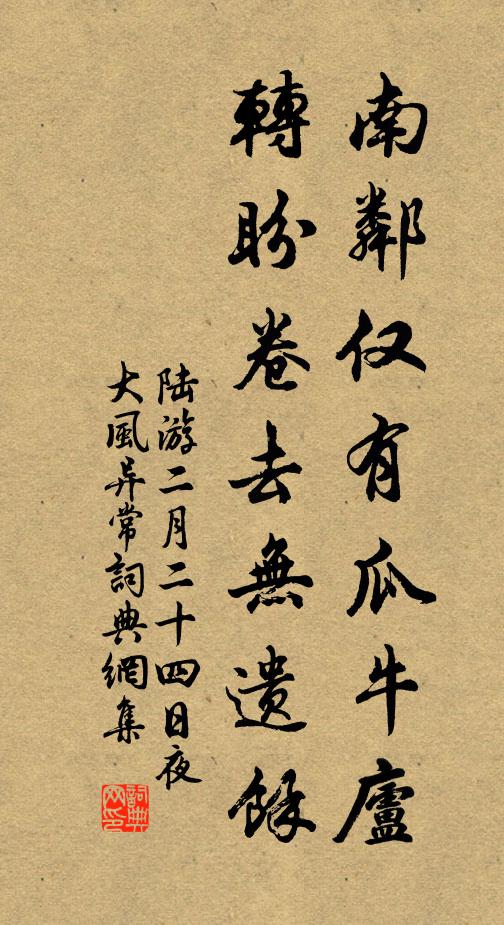 南鄰仅有瓜牛廬
轉盼卷去無遺餘
陆游二月二十四日夜
大風异常詞典網集
詞典网印